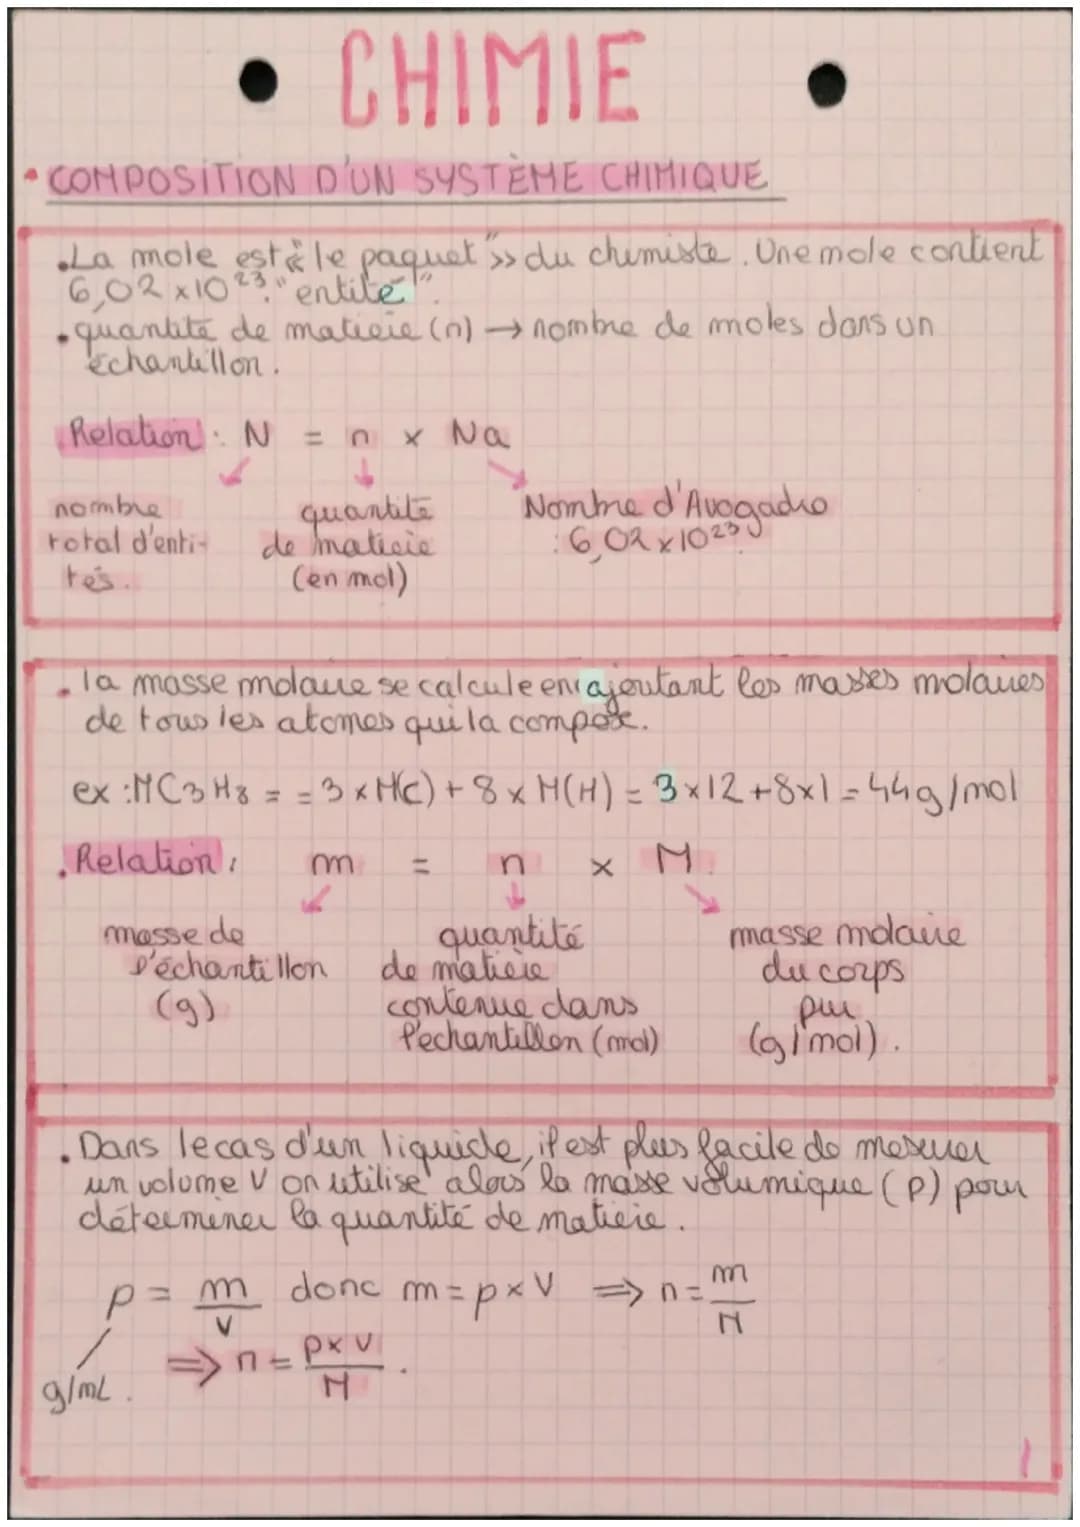 CHIMIE
• COMPOSITION D'UN SYSTÈME CHIMIQUE
. La mole est « le paquet" » du chimiste. Une mole contient
6,02 x10²³ "entité".
. quantité de matière (n) → nombre de moles dans un
échantillon.
. Relation : N = n x Na
nombre total d'enti-tés.
quantité de matière (en mol)
Nombre d'Avogadro : 6,02 x 10²³
. la masse molaire se calcule en ajoutant les masses molaires
de tous les atomes qui la compose.
ex : M C3 H8 = = 3 x M(C) + 8 x M(H) = 3 x 12 + 8 x 1 = 44 g/mol
. Relation : m = n x M.
masse de l'échantillon (g)
quantité de matière contenue dans l'echantillon (mol)
masse molaire du corps pur (g/mol).
. Dans le cas d'un liquide, il est plus facile de mesurer
un volume V on utilise alors la masse volumique (ρ) pour
déterminer la quantité de matière.
ρ = m/V donc m = ρ x V ⇒ n = m/M
⇒ n = ρ x V/M .
g/mL .
1